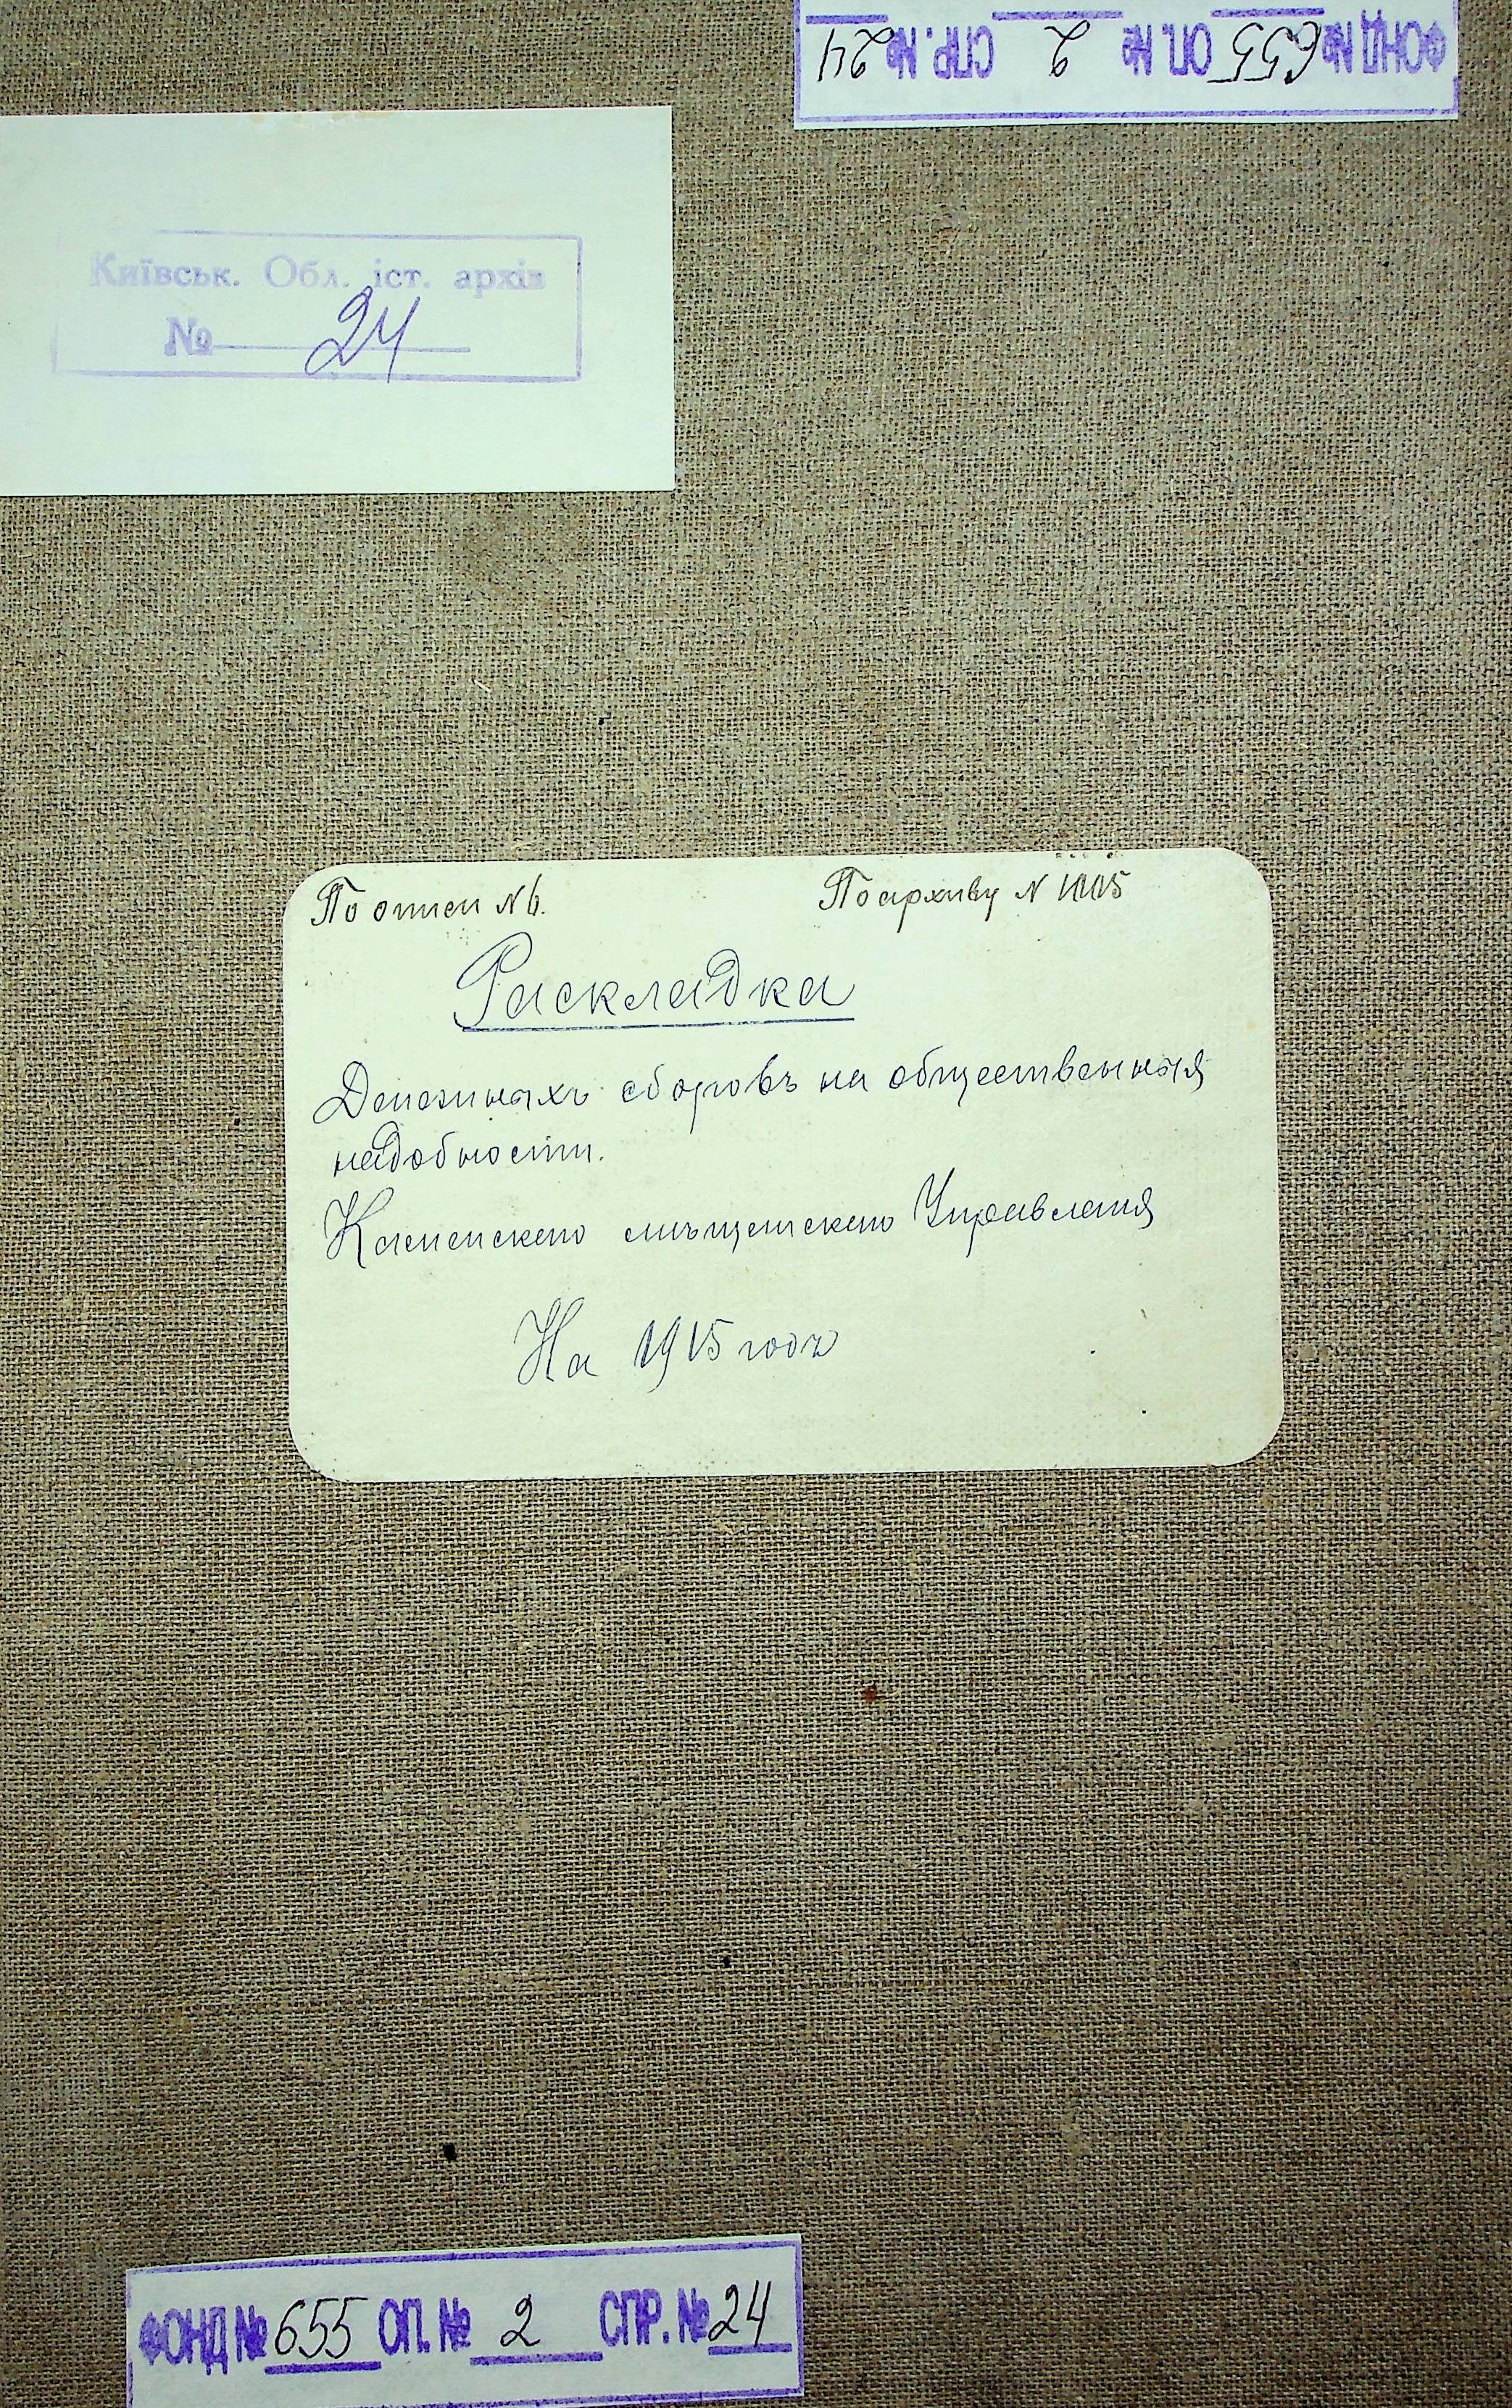 ФОНД № 655 ОП. № 2 СПР. № 24
Київськ. Обл. іст. архів
№ 24
По описи № 6. По архиву № 1005
Раскладка
Денежныхъ сборовъ на общественныя
надобности.
Каменскаго мѣщанскаго Управленія
На 1915 годъ
ФОНД № 655 ОП. № 2 СПР. № 24